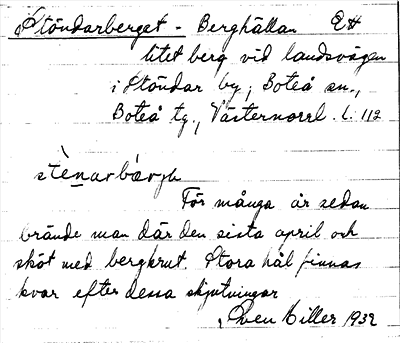 Stöndarberget - Berghällan EH
litet berg vid landsvägen
i Stöndar by, Boteå sn.,
Boteå tg., Västernorrl. l. 112
stènarbærjh
För många år sedan
brände man där den sista april och
sköt med bergkrut. Stora hål finnas
kvar efter dessa skjutningar
Sven Hiller 1932